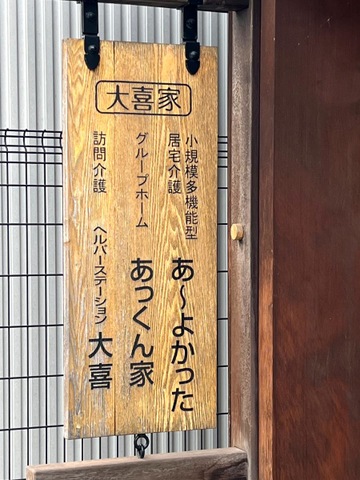 大喜家
小規模多機能型
居宅介護
あ〜よかった
グループホーム
あっくん家
訪問介護
ヘルパーステーション
大喜